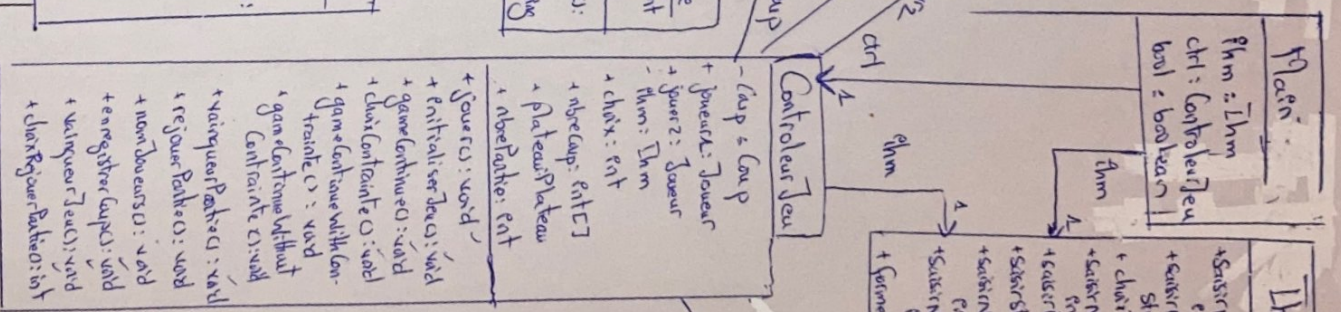 Main
ihm : Ihm
ctrl : ControleurJeu
bool : boolean
ctrl
1
ihm
1
ihm
1
ControleurJeu
- Coup : Coup
+ joueur1 : Joueur
+ jouer2 : Joueur
- ihm : Ihm
+ choix : int
+ nbreCoup : int[]
+ plateau:Plateau
+ nbrePartie : int
+ jouer() : void
+ initialiserJeu() : void
+ gameContinue() : void
+ choixContrainte() : void
+ gameContinueWithCon-
trainte() : void
+ gameContinueWithout
Contrainte() : void
+ vainqueurPartie() : void
+ rejouerPartie() : void
+ nomJoueurs() : void
+ enregistrerCoups() : void
+ vainqueurJeu() : void
+ choixRejouerPartie() : int
+ saisir
+ saisir
+ choi
+ saisirn
+ saisir
+ saisirst
+ saisirn
+ saisirn
+ forme